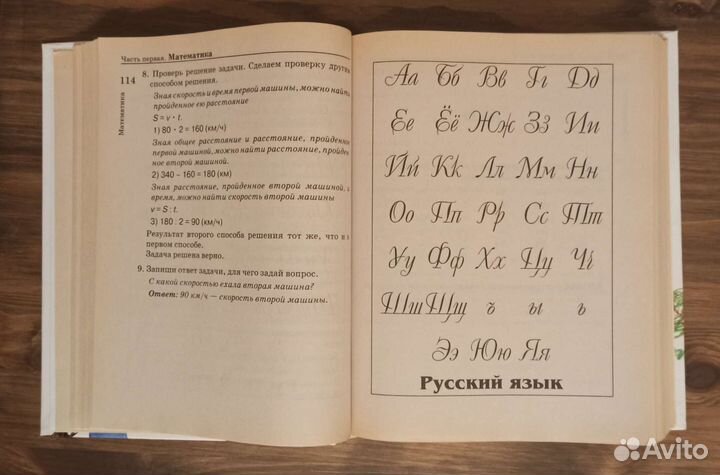 Часть первая. Математика
114
Математика
8. Проверь решение задачи. Сделаем проверку другим
способом решения.
Зная скорость и время первой машины, можно найти
пройденное ею расстояние
S = v · t.
1) 80 · 2 = 160 (км/ч)
Зная общее расстояние и расстояние, пройденное
первой машиной, можно найти расстояние, пройден-
ное второй машиной.
2) 340 – 160 = 180 (км)
Зная расстояние, пройденное второй машиной, и
время, можно найти скорость второй машины
v = S : t.
3) 180 : 2 = 90 (км/ч)
Результат второго способа решения тот же, что и в
первом способе.
Задача решена верно.
9. Запиши ответ задачи, для чего задай вопрос.
С какой скоростью ехала вторая машина?
Ответ: 90 км/ч — скорость второй машины.
Аа Бб Вв Гг Дд
Ее Ёё Жж Зз Ии
Йй Кк Лл Мм Нн
Оо Пп Рр Сс Тт
Уу Фф Хх Цц Чч
Шш Щщ ъ ы ь
Ээ Юю Яя
Русский язык
Avito